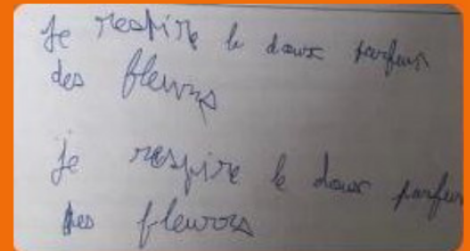 Je respire le doux parfum
des fleurs
je respire le doux parfum
des fleurs